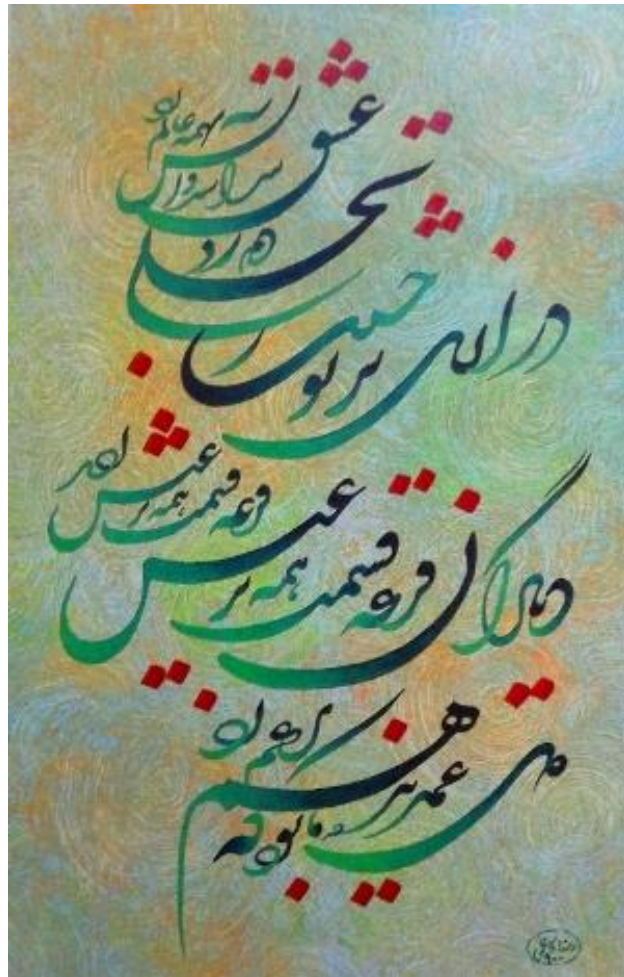 در ازل پرتو حسنت ز تجلی دم زد
عشق پیدا شد و آتش به همه عالم زد
دیگران قرعه قسمت همه بر عیش
قرعه قسمت همه بر عیش زدند
دل غمدیده ما بود که هم بر غم زد